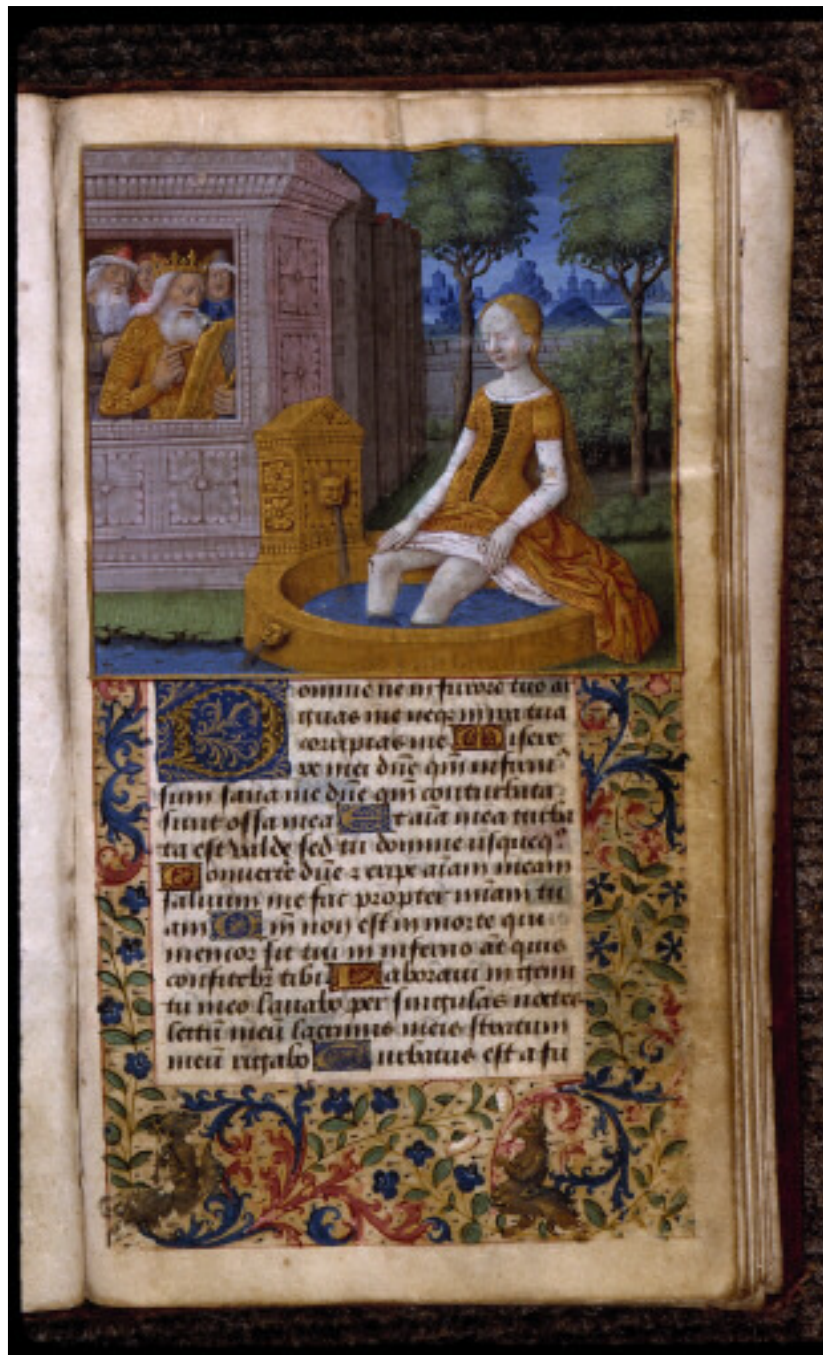 Domine ne in furore tuo ar
guas me neq in ira tua
corripias me Misere
re mei dne qm infirm
sum sana me dne qm conturbata
sunt ossa mea Et aia mea turba
ta est valde sed tu domine usqueq
Convertere dne z eripe aiam meam
salvum me fac propter miam tu
am Qm non est in morte qui
memor sit tui in inferno at quis
confitebr tibi Laboravi in gemi
tu meo lavabo per singulas noctes
lectu meu lacrimis meis stratum
meu rigabo Turbatus est a fu